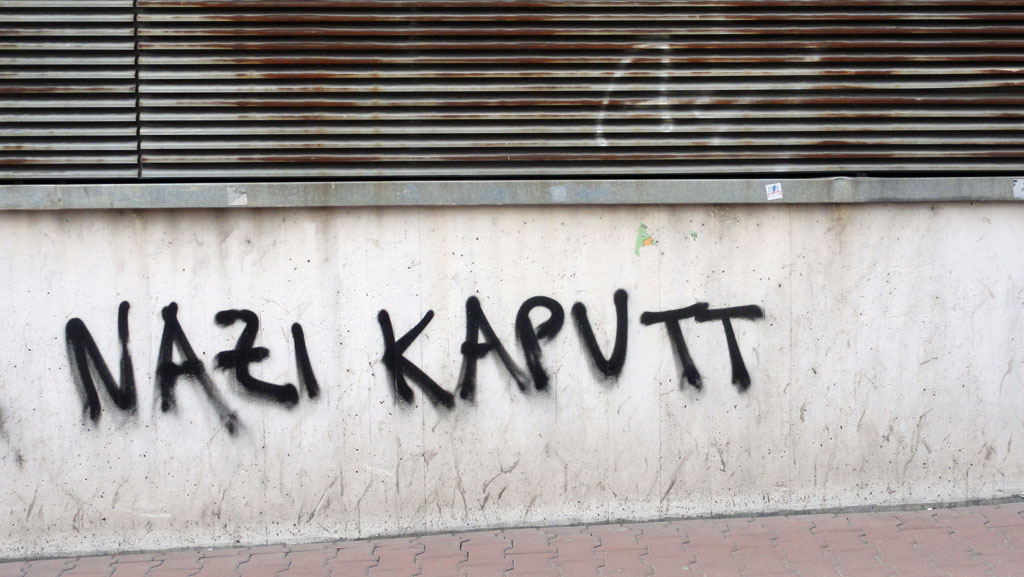 NAZI KAPUTT